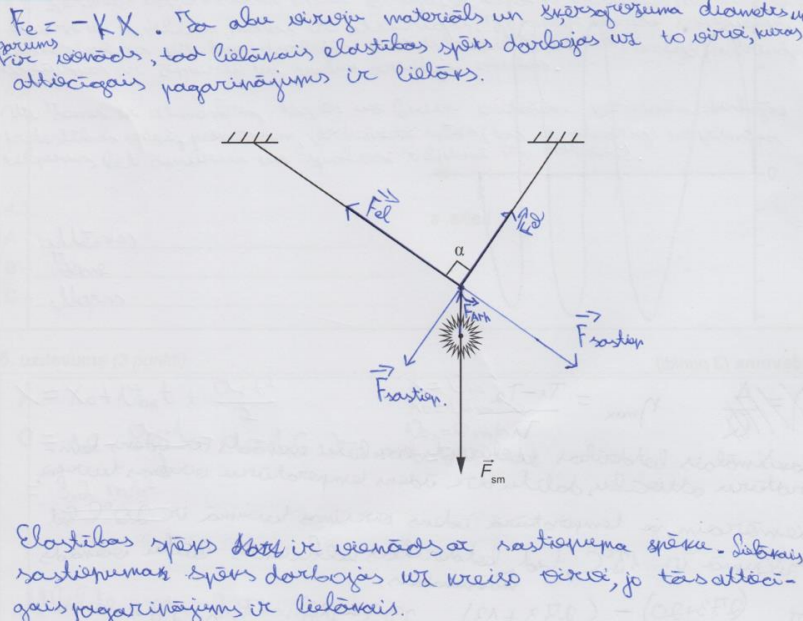 Fe = -KX. Ja abu virvju materiāls un šķērsgriezuma diametrs un
garums
ir vienāds, tad lielākais elastības spēks darbojas uz to virvi, kuras
attiecīgais pagarinājums ir lielāks.
Fel
α
FArh
Fsastiep.
Fsastiep.
Fsm
Elastības spēks ir vienāds ar sastiepuma spēku. Lielākais
sastiepuma spēks darbojas uz kreiso virvi, jo tās attiecī-
gais pagarinājums ir lielākais.